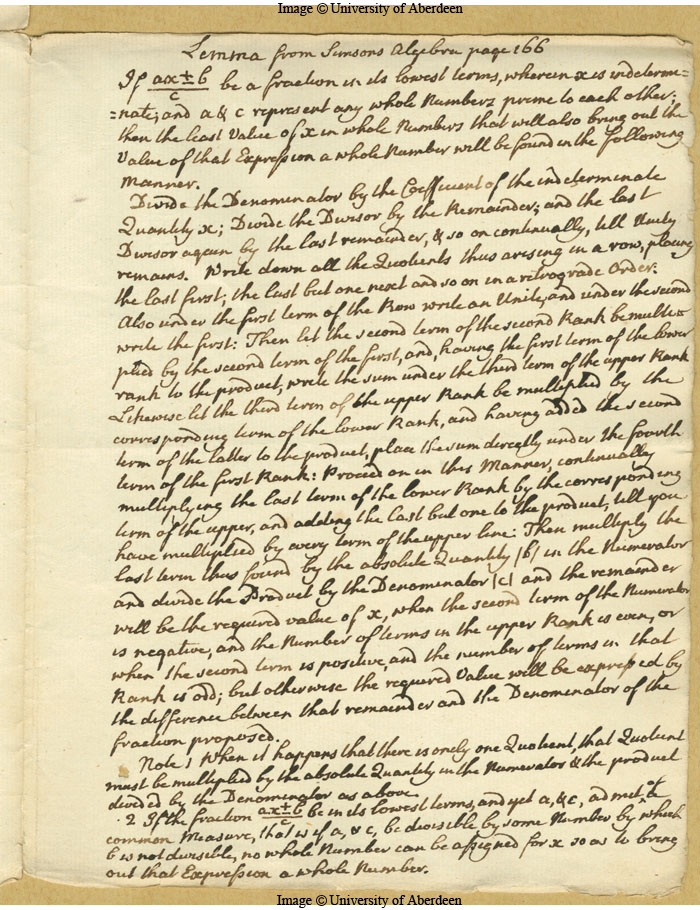 Image © University of Aberdeen
Lemma from Simsons Algebra page 166
If ax±b/c be a fraction in its lowest terms, wherein x is indeterm-
=nate; and a & c represent any whole Numbers prime to each other:
then the least Value of x in whole Numbers that will also bring out the
Value of that Expression a whole Number will be found in the following
Manner.
Divide the Denominator by the Coefficient of the indeterminate
Quantity x; Divide the Divisor by the Remainder; and the last
Divisor again by the last remainder, & so on continually, till Unity
remains. Write down all the Quotients thus arising in a row, placing
the last first; the last but one next and so on in a retrograde Order.
Also under the first term of the Row write an Unite, and under the second
write the first: Then let the second term of the second Rank be multi-
plied by the second term of the first, and, having the first term of the lower
rank to the product, write the sum under the third term of the upper Rank
Likewise let the third term of the upper Rank be multiplied by the
corresponding term of the lower Rank, and having added the second
term of the latter to the product, place the sum directly under the fourth
term of the first Rank: Proceed on in this Manner, continually
multiplying the last term of the lower Rank by the corresponding
term of the upper, and adding the last but one to the product, till you
have multiplied by every term of the upper line: Then multiply the
last term thus found by the absolute Quantity |b| in the Numerator
and divide the Product by the Denominator |c| and the remainder
will be the required value of x, when the second term of the Numerator
is negative, and the Number of terms in the upper Rank is even, or
when the second term is positive, and the number of terms in that
Rank is odd; but otherwise the required Value will be expressed by
the difference between that remainder and the Denominator of the
fraction proposed.
Note 1 When it happens that there is onely one Quotient, that Quotient
must be multiplied by the absolute Quantity in the Numerator & the product
divided by the Denominator as above.
2 If the fraction ax±b/c be in its lowest terms, and yet a, & c, admit of a
common Measure, that is if a, & c, be divisible by some Number by which
b is not divisible, no whole Number can be assigned for x so as to bring
out that Expression a whole Number.
Image © University of Aberdeen